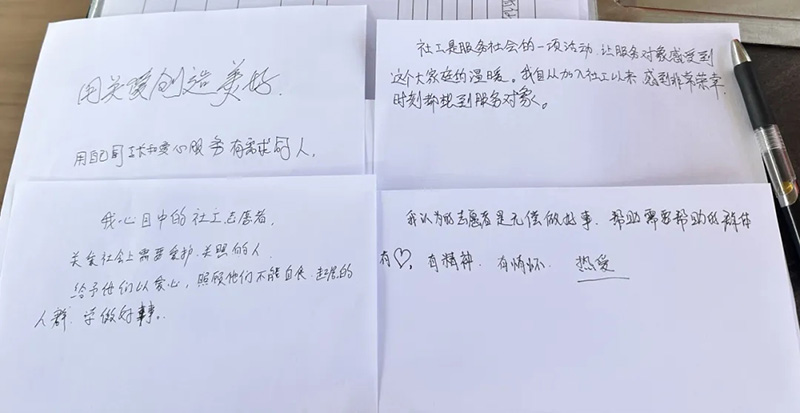 用关爱创造美好.
用自己的 和爱心服务有需求的人.
社工是服务社会的一项活动,让服务对象感受到
这个大家庭的温暖。我自从加入社工以来,感到非常荣幸
时刻都想到服务对象。
我心目中的社工志愿者,
关爱社会上需要爱护.关照的人.
给予他们以爱心,照顾他们不能自食.起居的
人群.学做好事。
我认为的志愿者是无偿做好事、帮助需要帮助的群体
有♡,有精神.有情怀. 热爱